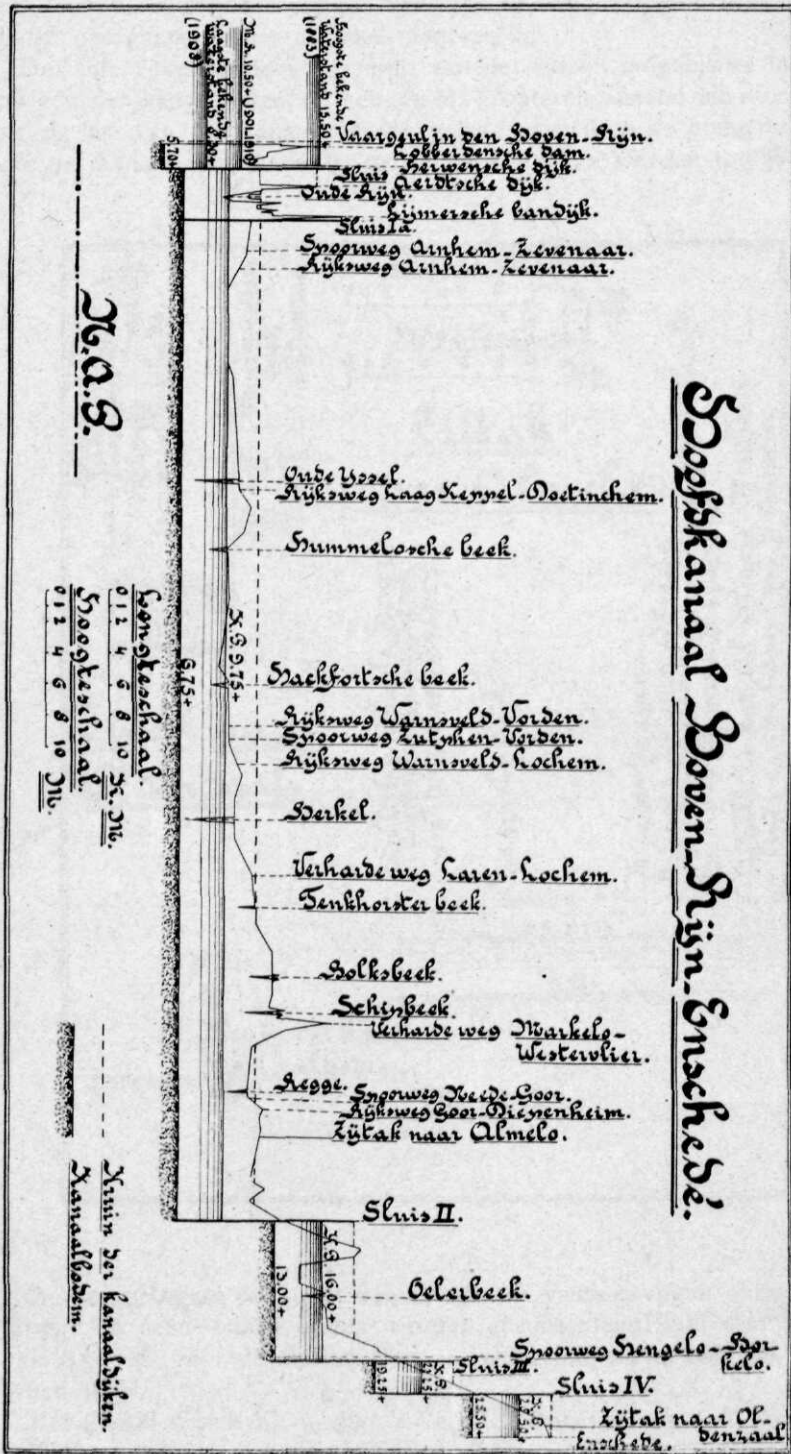 Hoofdkanaal Boven-Rijn-Enschedé.
Hoogste bekende
Waterstand 15.50+
(1883)
M.R. 10.50+ (1901-1910)
Laagste bekende
waterstand
(1908)
5.70+
Vaargeul in den Boven-Rijn.
Lobberdensche dam.
Herwensche dijk.
Sluis I
Aerdtsche dijk.
Oude Rijn.
Lijmersche bandijk.
Sluis Ia.
Spoorweg Arnhem-Zevenaar.
Rijksweg Arnhem-Zevenaar.
N.A.P.
Oude Yssel.
Rijksweg Laag Keppel-Doetinchem.
Hummelosche beek.
K.P. 9.75+
6.75+
Hackfortsche beek.
Rijksweg Warnsveld-Vorden.
Spoorweg Zutphen-Vorden.
Rijksweg Warnsveld-Lochem.
Berkel.
Verharde weg Laren-Lochem.
Tenkhorster beek.
Bolksbeek.
Schipbeek.
Verharde weg Markelo-
Westervlier.
Regge.
Spoorweg Neede-Goor.
Rijksweg Goor-Diepenheim.
Zijtak naar Almelo.
Sluis II.
K.P. 16.00+
13.00+
Oelerbeek.
Spoorweg Hengelo-Bor
kelo.
Sluis III.
K.P.
19.25+
Sluis IV.
K.P.
25.50+
Zijtak naar Ol-
denzaal
Enschede.
Lengteschaal.
0 1 2 4 6 8 10 K.M.
Hoogteschaal.
0 1 2 4 6 8 10 M.
Kruin der kanaaldijken.
Kanaalbodem.